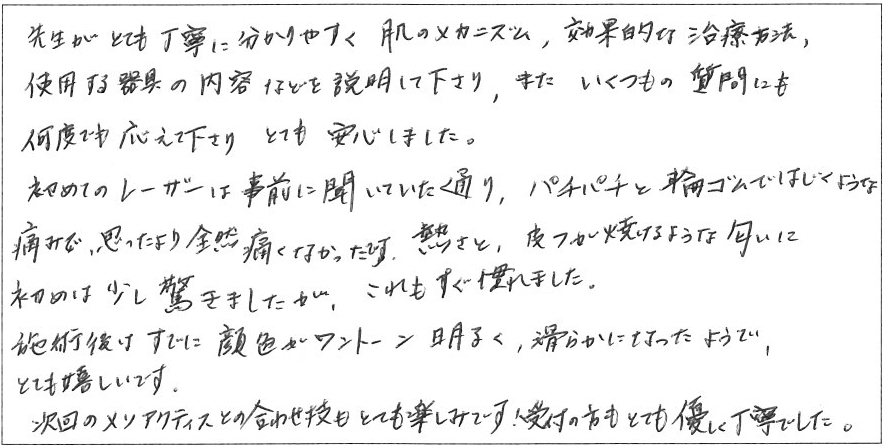 先生がとても丁寧に分かりやすく肌のメカニズム,効果的な治療方法,
使用する器具の内容などを説明して下さり,また いくつもの質問にも
何度でも応えて下さり とても安心しました。
初めてのレーザーは事前に聞いていた通り,パチパチと輪ゴムではじくような
痛みで、思ったより全然痛くなかったです。熱さと,皮フが焼けるような匂いに
初めは少し驚きましたが,これもすぐ慣れました。
施術後はすでに顔色がワントーン明るく,滑らかになったようで,
とても嬉しいです。
次回のメソアクティスとの合わせ技もとても楽しみです!受付の方もとても優しく丁寧でした。